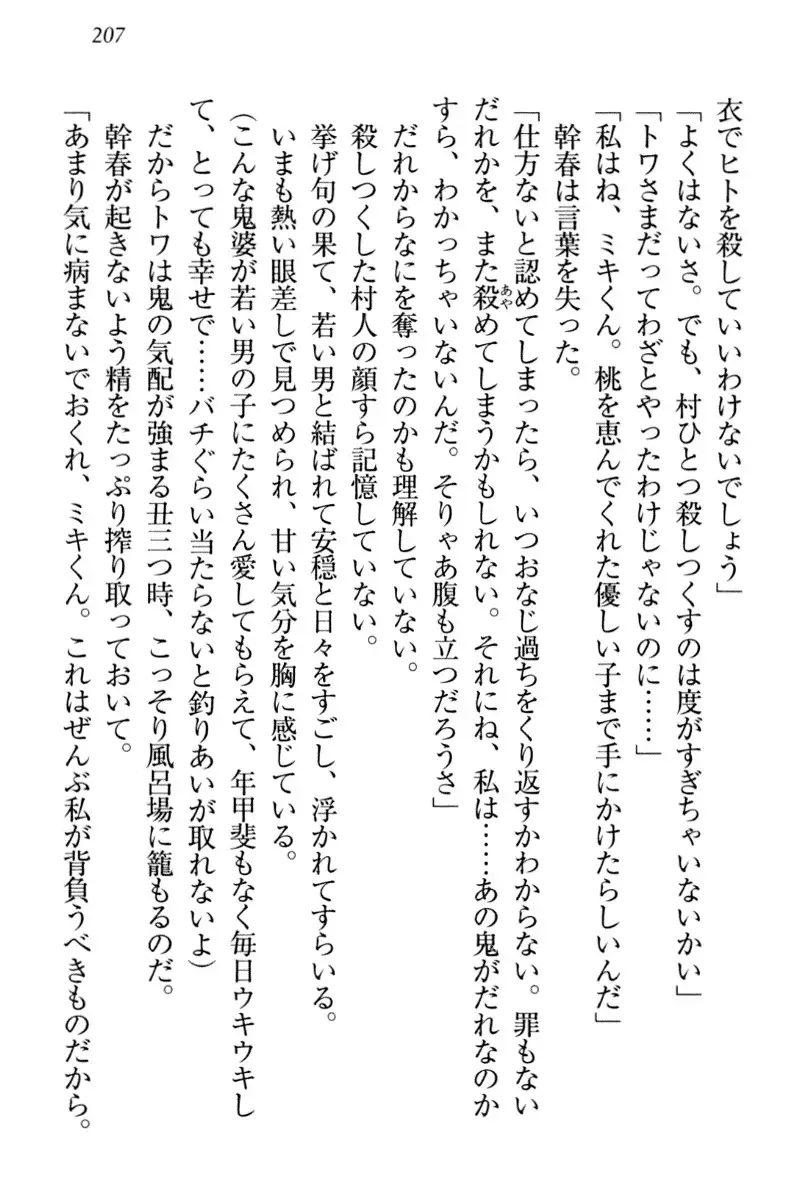 207
衣でヒトを殺していいわけないでしょう」
「よくはないさ。でも、村ひとつ殺しつくすのは度がすぎちゃいないかい」
「トワさまだってわざとやったわけじゃないのに……」
「私はね、ミキくん。桃を恵んでくれた優しい子まで手にかけたらしいんだ」
幹春は言葉を失った。
「仕方ないと認めてしまったら、いつおなじ過ちをくり返すかわからない。罪もない
だれかを、また殺めてしまうかもしれない。それにね、私は……あの鬼がだれなのか
すら、わかっちゃいないんだ。そりゃあ腹も立つだろうさ」
だれからなにを奪ったのかも理解していない。
殺しつくした村人の顔すら記憶していない。
挙げ句の果て、若い男と結ばれて安穏と日々をすごし、浮かれてすらいる。
いまも熱い眼差しで見つめられ、甘い気分を胸に感じている。
（こんな鬼婆が若い男の子にたくさん愛してもらえて、年甲斐もなく毎日ウキウキし
て、とっても幸せで……バチぐらい当たらないと釣りあいが取れないよ）
だからトワは鬼の気配が強まる丑三つ時、こっそり風呂場に籠もるのだ。
幹春が起きないよう精をたっぷり搾り取っておいて。
「あまり気に病まないでおくれ、ミキくん。これはぜんぶ私が背負うべきものだから。